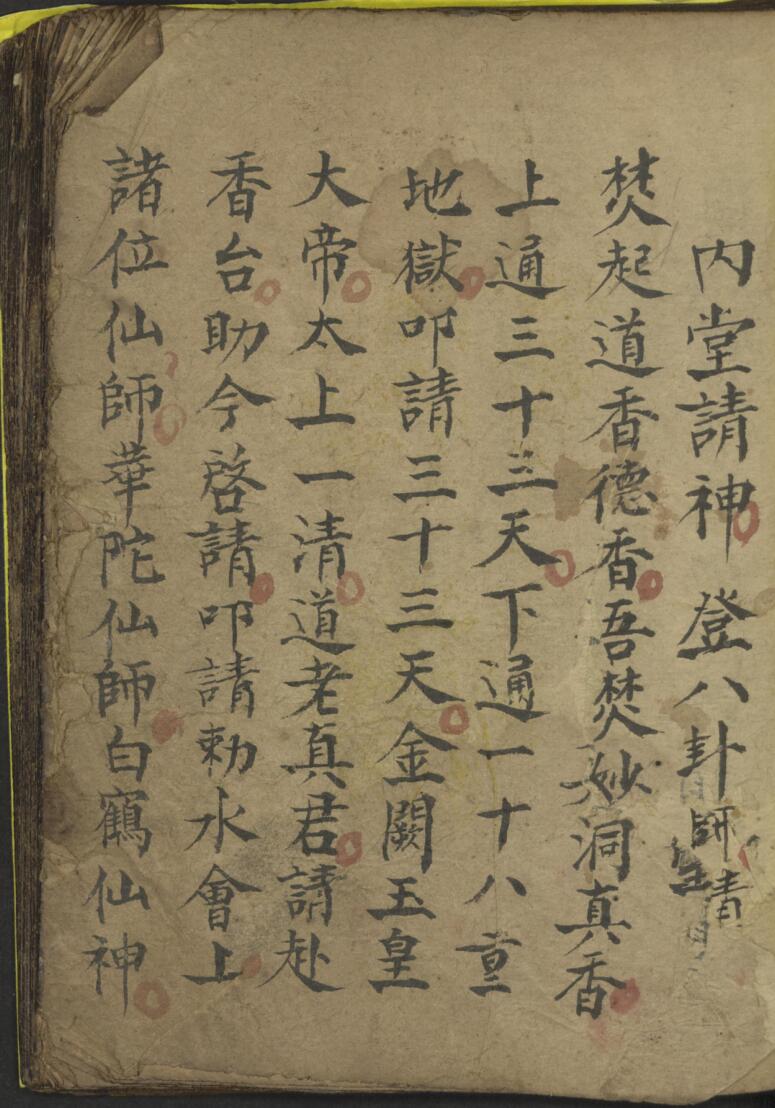 內堂請神 登八卦師請
焚起道香德香吾焚妙洞真香
上通三十三天下通一十八重
地獄叩請三十三天金闕玉皇
大帝太上一清道老真君請赴
香台助今啓請叩請勅水會上
諸位仙師華陀仙師白鶴仙神